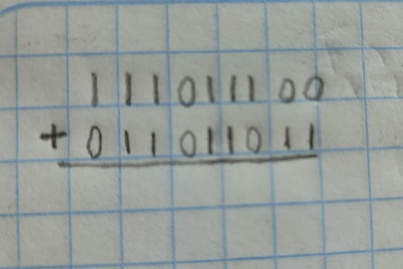 111011100
+ 011011011